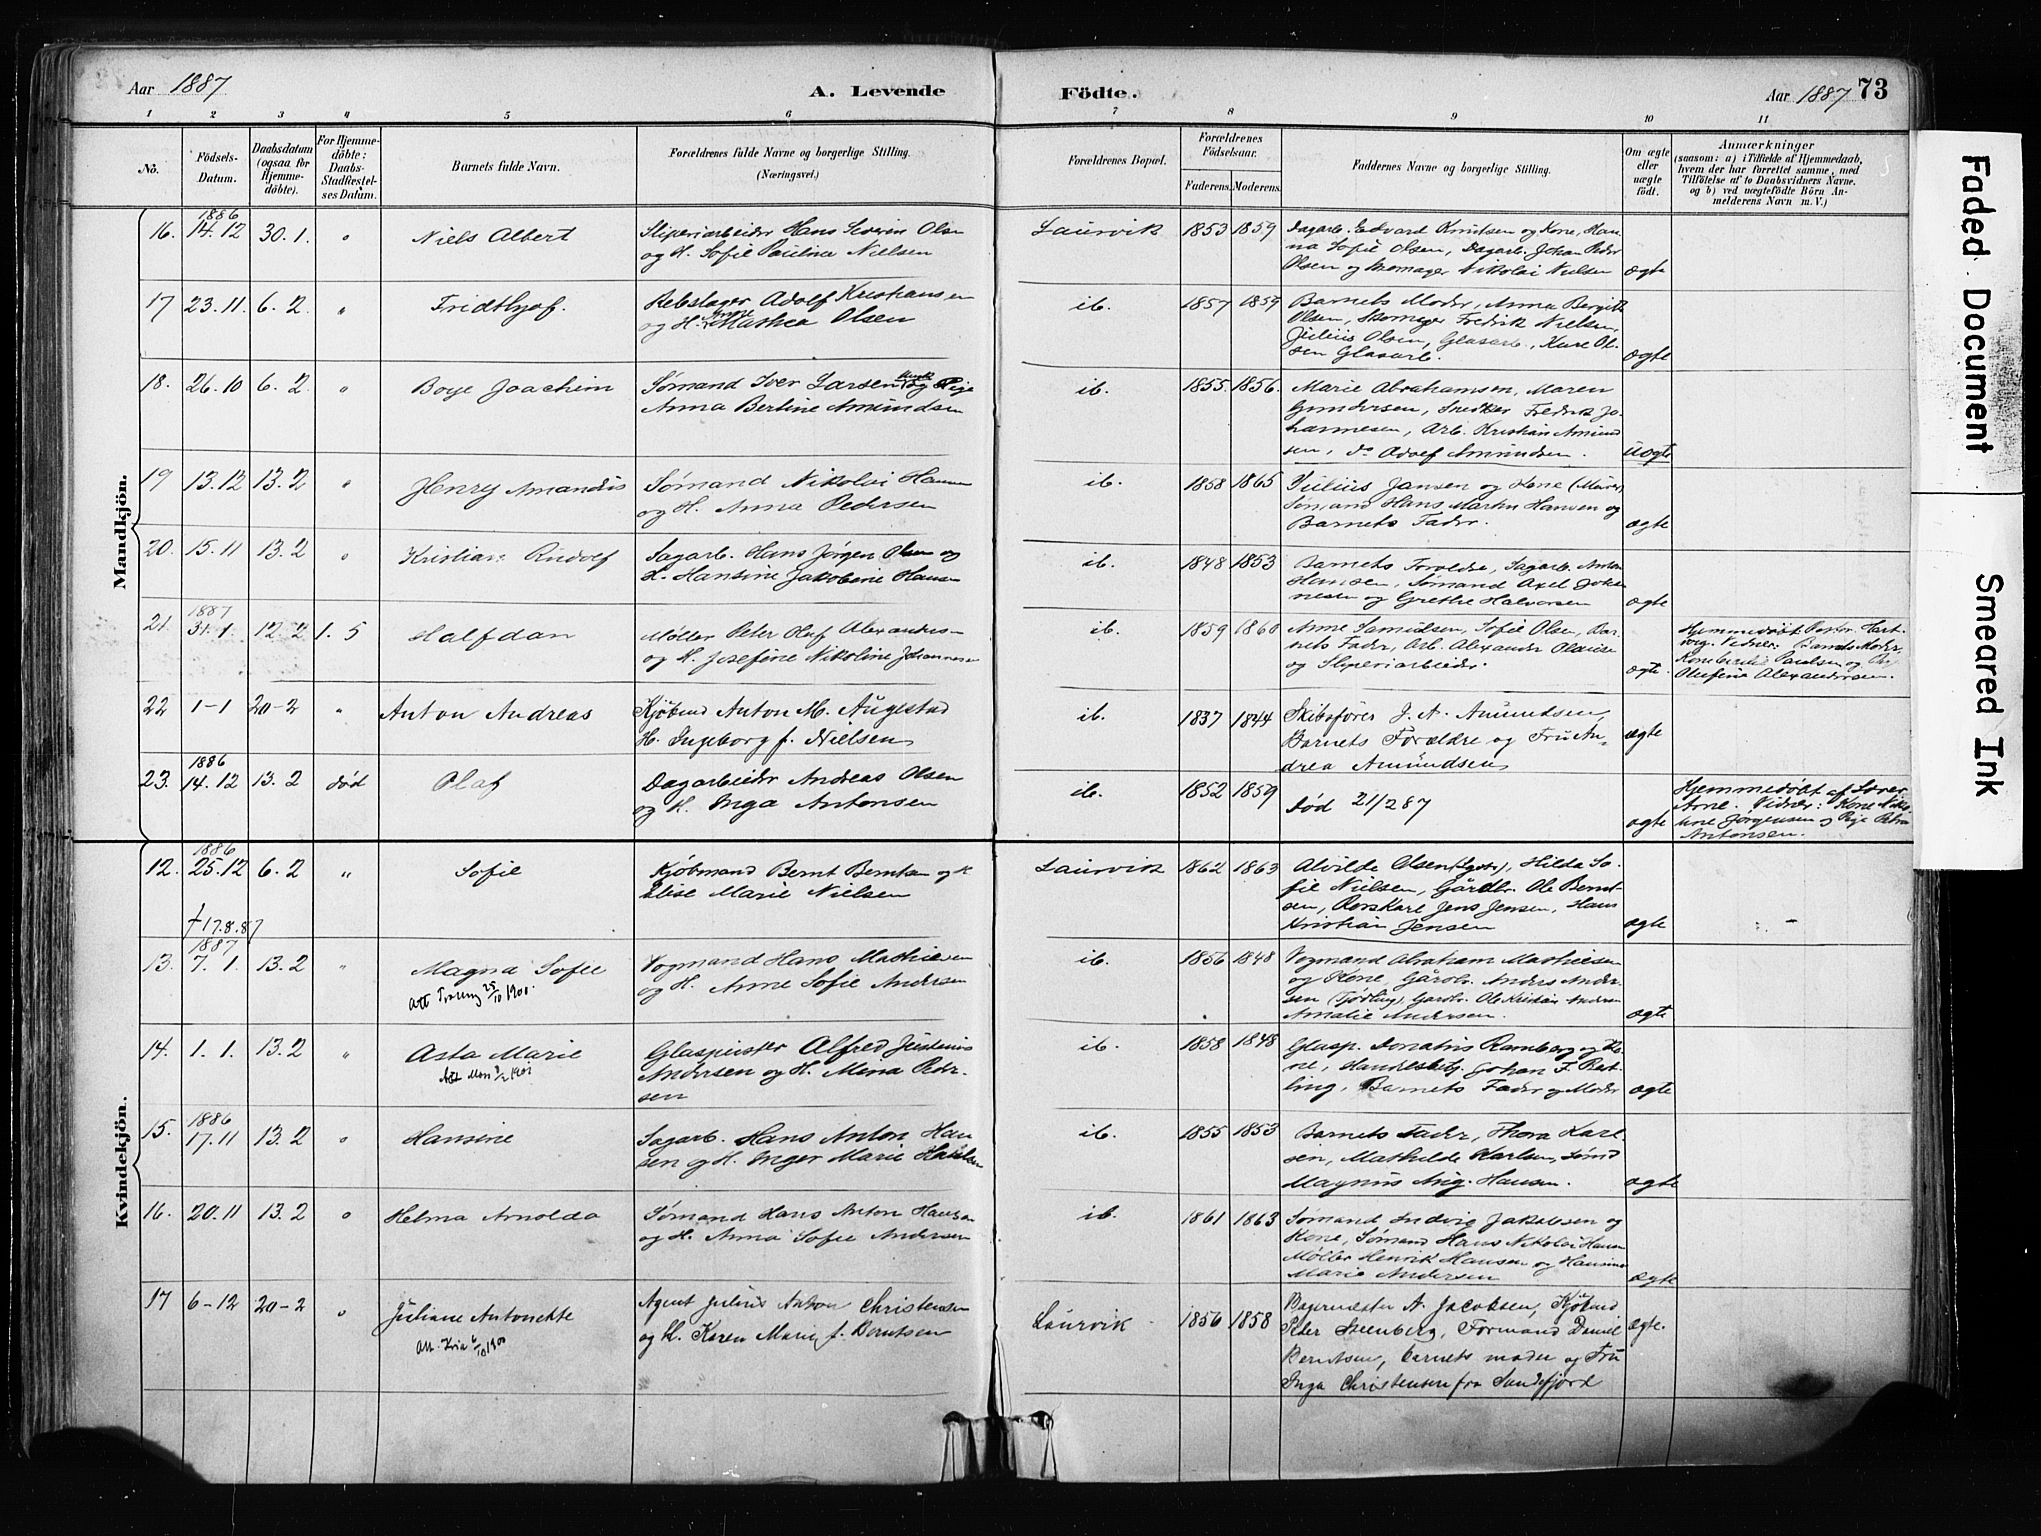 Aar 1887
A. Levende Födte.
Aar 1887 73
1 2 3 4 5 6 7 8 9 10 11
No.
Födsels-Datum.
Daabsdatum (ogsaa for Hjemmedöbte).
For Hjemmedöbte: Daabs-Stadfæstelses Datum.
Barnets fulde Navn.
Forældrenes fulde Navne og borgerlige Stilling. (Næringsvei.)
Forældrenes Bopæl.
Forældrenes Födselsaar.
Faderens. Moderens.
Faddernes Navne og borgerlige Stilling.
Om ægte eller uægte födt.
Anmærkninger
(saasom: a) i Tilfælde af Hjemmedaab, hvem der har forrettet samme, med Tilföielse af to Daabsvidners Navne. og b) ved uægtefödte Börn Anmelderens Navn m. V.)
Mandkjön.
16. 1886 14.12 30.1. " Niels Albert
Sliperiarbeider Hans Severin Olsen
og H. Sofie Paulina Nielsen
Laurvik 1853 1859
Dagarb. Edvard Knudsen og Kone, Han-
na Sofie Olsen, Dagarb. Johan Peder
Olsen og Skomager Nikolai Nielsen ægte
17 23.11. 6.2. " Fridthjof.
Rebslager Adolf Kristiansen
og H. Anne Mathea Olsen
ib. 1857 1859
Barnets Moder, Anna Bergitte
Olsen, Skomager Fredrik Nielsen,
Julius Olsen, Glasarb., Karl Ol-
sen Glasarb. ægte
18. 26.10 6.2. " Boye Joachim
Sømand Iver Larsen og Pige
Anna Bertine Amundsen
ib. 1855. 1856.
Marie Abrahamsen, Maren
Gundersen, Snedker Fredrik Jo-
hannesen, Arb. Kristian Amund
sen, do Adolf Amundsen. uægte
19 13.12 13.2 " Henry Amandus
Sømand Nikolai Hansen
og H. Anna Pedersen
ib. 1858 1865
Julius Jansen og Kone
Sømand Hans Martin Hansen og
Barnets Fader. ægte
20. 15.11 13.2 " Kristian Rudolf
Sagarb. Hans Jørgen Olsen og
H. Hansine Jakobine Hansen
ib. 1848 1853
Barnets Forældre, Sagarb. Anton
Hansen, Sømand Axel Johan-
nesen og Grethe Halvorsen ægte
21. 1887 31.1. 12.2 1.5 Halfdan
Møller Peter Oluf Alexander-
og H. Josefine Nikoline Johannesen
ib. 1859 1860
Anne Samuelsen, Sofie Olsen, Bar-
nets Fader, Arb. Alexander Olausen
og Sliperiarbeider. ægte.
Hjemmedøbt Pastor Hart-
vig. Vidner: Barnets Moder,
Paulsen og
Olufine Alexandersen.
22 1-1 20-2 " Anton Andreas
Kjøbmd Anton M. Augestad
H. Ingeborg f. Nielsen
ib. 1837 1844
Skibsfører J. A. Amundsen,
Barnets Forældre og Fru An-
drea Amundsen ægte
23. 1886 14.12 13.2 død Olaf
Dagarbeider Andreas Olsen
og H. Inga Antonsen
ib. 1852 1859
Død 21/2 87 ægte
Hjemmedøbt af Lærer
Arne. Vidner: Kone Niko-
line Jørgensen og Pige Petra
Antonsen.
Kvindekjön.
12. 1886 25.12 6.2 " Sofie
† 17.8.87
Kjøbmand Bernt Berntsen og H.
Elise Marie Nielsen
Laurvik 1862 1863
Alvilde Olsen, Hilda So-
fie Nielsen, Gårdbr. Ole Bernt-
sen, Rorskarl Jens Jensen, Hans
Kristian Jensen ægte -
13. 1887 7.1. 13.2 " Magna Sofie
Att 25/10 1900.
Vognmand Hans Mathisen
og H. Anne Sofie Andersen
ib. 1856 1848
Vognmand Abraham Mathisen
og Kone, Gårdbr. Anders Ander-
sen (Tjødling), Gårdbr. Ole Kristian Andersen
Amalie Andersen. ægte
14. 1.1. 13.2 " Asta Marie
Glaspuster Alfred Justinus
Andersen og H. Mena Peder-
sen
ib. 1858 1848
Glasp. Donatus Ramberg og Ko-
ne, Handelsbetj. Johan F.
ling, Barnets Fader og Moder ægte
15. 1886 17.11 13.2 " Hansine
Sagarb. Hans Anton Han-
sen og H. Inger Marie
ib. 1855 1853
Barnets Fader, Thora Karl-
sen, Mathilde Karlsen, Sømd
Magnus Aug. Hansen. ægte
16. 20.11 13.2 " Helma Arnolda
Sømand Hans Anton Hansen
og H. Anna Sofie Andersen
ib. 1861 1863
Sømand Ludvig Jakobsen og
Kone, Sømand Hans Nikolai Hansen
Møller Henrik Hansen og Hansine
Marie Andersen ægte
17 6-12 20-2 " Juliane Antonette
Att. Kria 6/10 1900
Agent Julius Anton Christensen
og H. Karen Marie f. Berntsen
Laurvik 1856 1858
Bagermester A. Jacobsen, Kjøbmd
Peder Steenberg, Formand Daniel
Berntsen, barnets moder og Fru
Inga Christensen fra Sandefjord ægte.
Faded Document
Smeared Ink